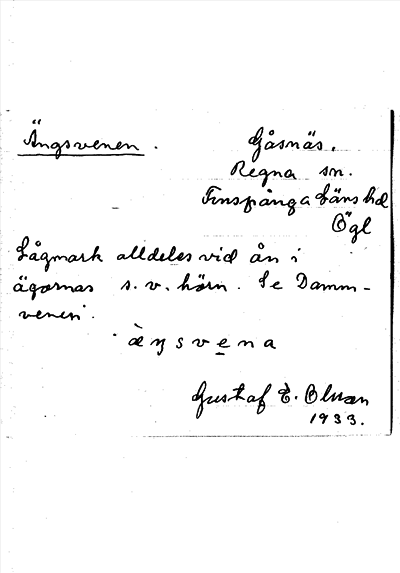 Ängsvenen. Gåsnäs.
Regna sn.
Finspånga Läns hd
Ögl
Lågmark alldeles vid ån i
ägornas s.v. hörn. Se Damm-
venen.
æŋsvena
Gustaf E. Olsson
1933.